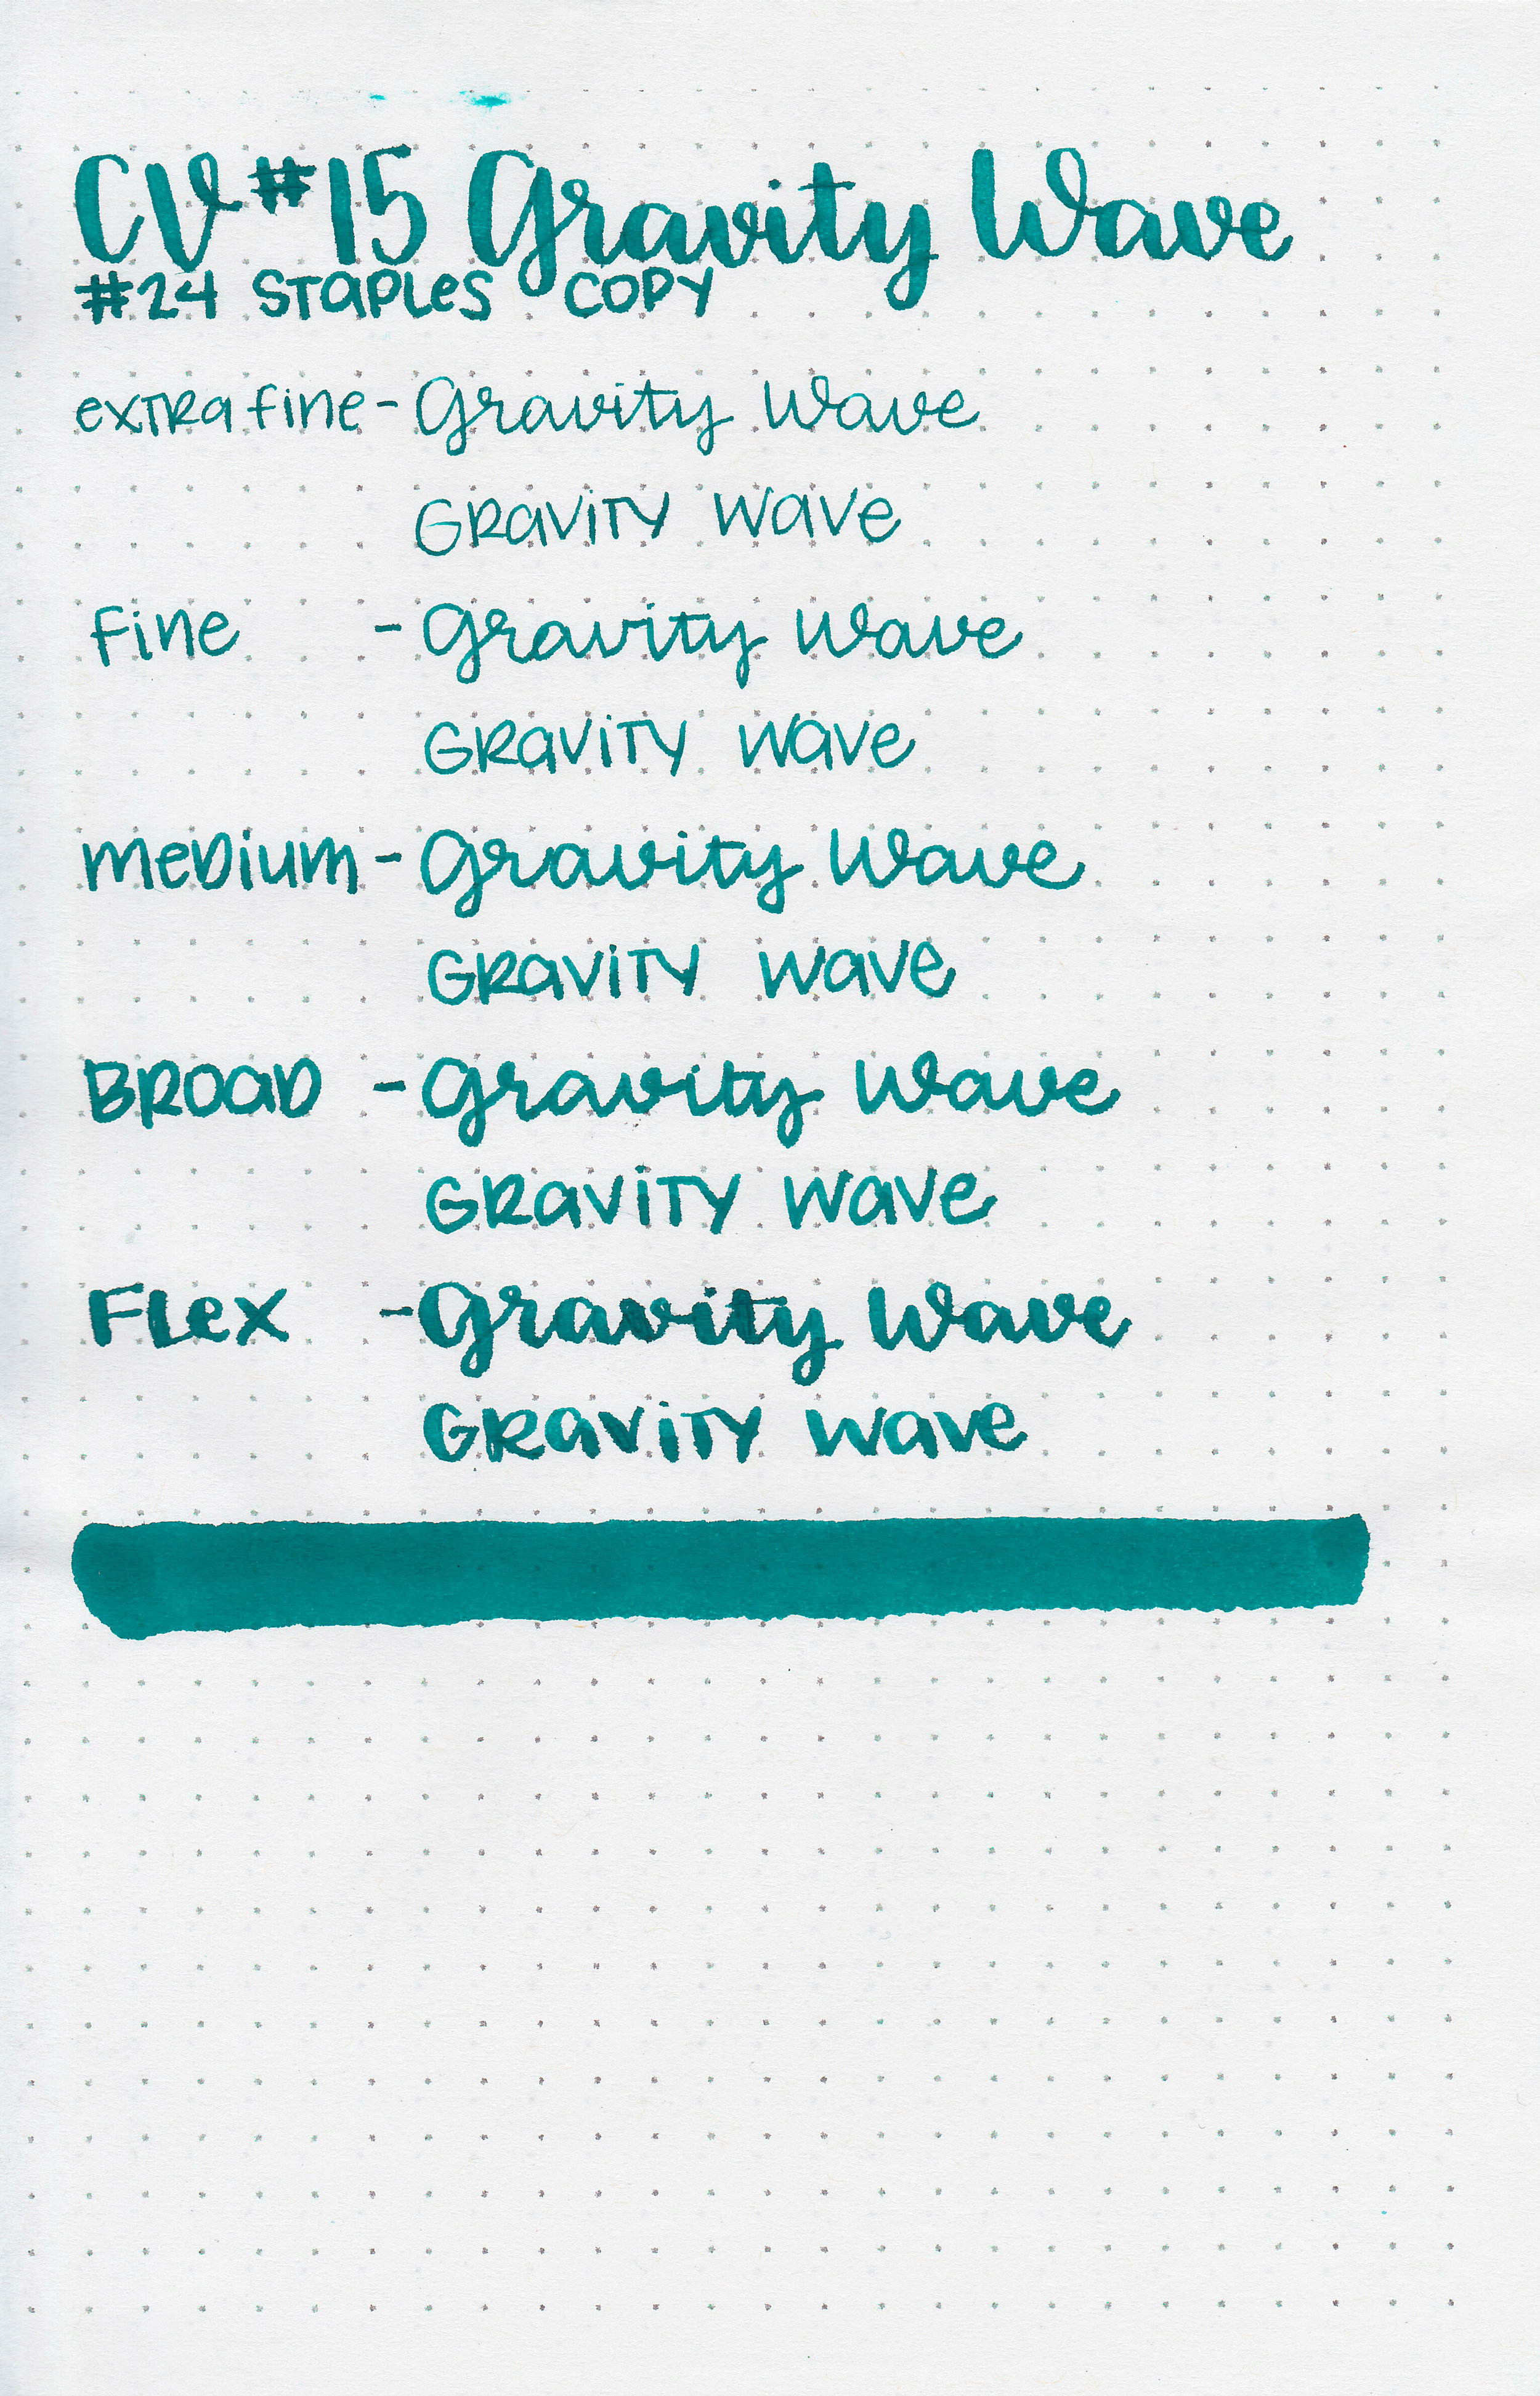 CV #15 Gravity Wave
#24 STaPLeS COPY
exTRa fine - Gravity Wave
GRaViTY Wave
fine - Gravity Wave
GRaViTY Wave
MeDium - Gravity Wave
GRaViTY Wave
BROaD - Gravity Wave
GRaViTY Wave
FLex - Gravity Wave
GRaViTY Wave